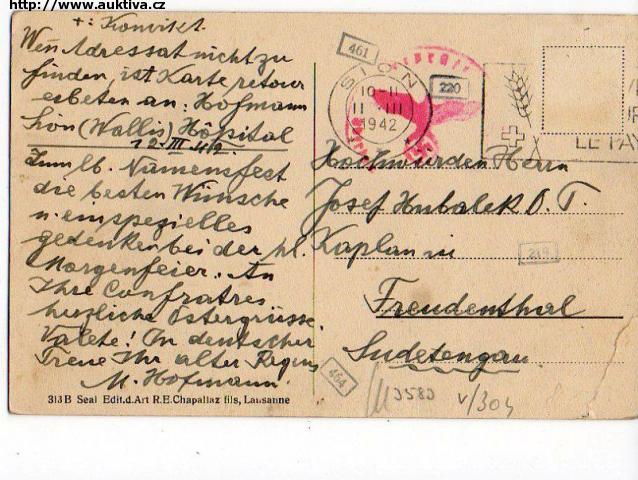 http://www.auktiva.cz
+: Konvikt.
Wen Adressat nicht zu
finden, ist Karte retour
erbeten an: Hofmann
Sion (Wallis) Hôpital
12-III-42.
Zum lb. Namensfest
die besten Wünsche
u. ein spezielles
gedenken bei der hl.
Morgenfeier. An
Ihre Confratres
herzliche Ostergrüsse.
Valete! In deutscher
Treue Ihr alter Regens
M. Hofmann.
313 B Seal Edit.d.Art R.E.Chapallaz fils, Lausanne
461
SION
10-11
11 III
1942
220
LE PA
Hochwürden Herrn
Josef Hubalek O. T.
Kaplan in
219
Freudenthal
Sudetengau.
464
3583
V/304